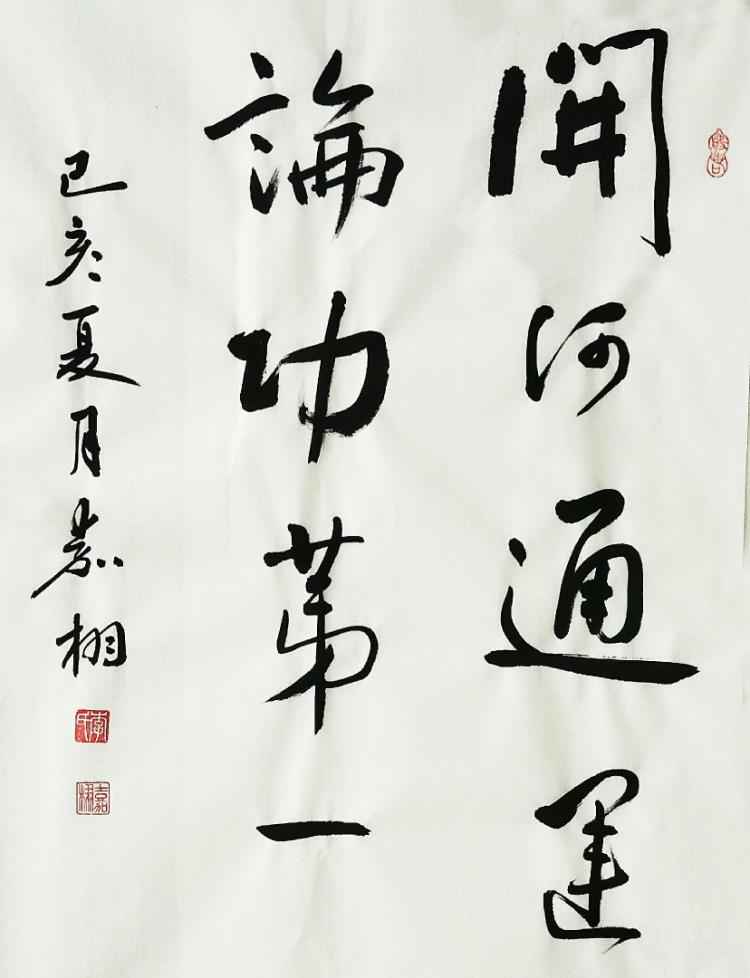 開河通運
論功第一
己亥夏月嘉栩
李氏